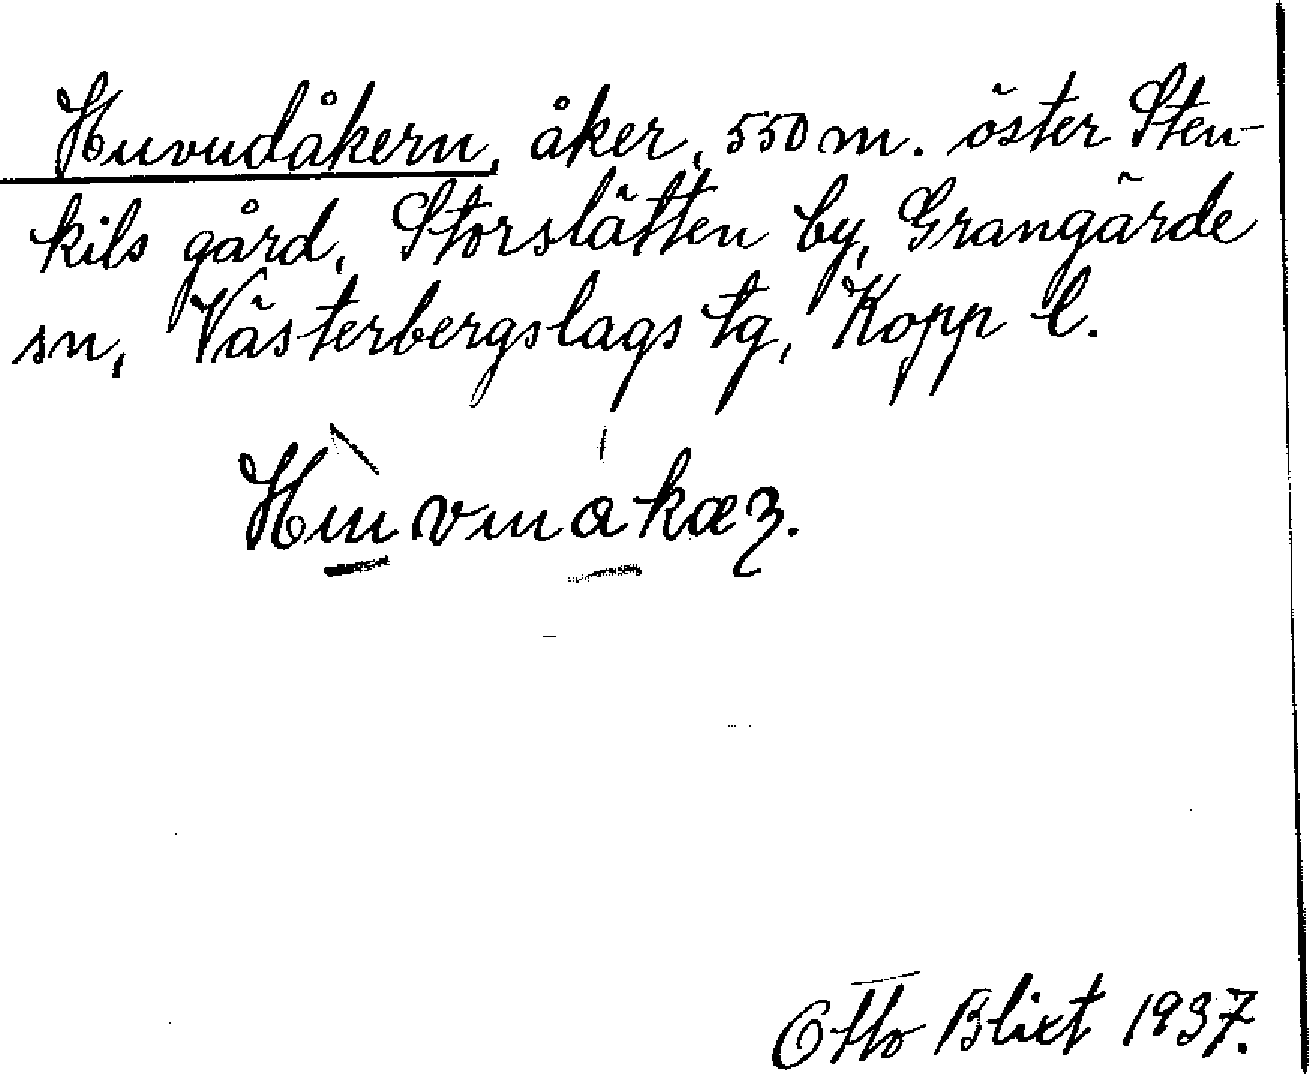 Huvudåkern, åker, 550 m. öster Sten-
kils gård, Storslätten by, Grangärde
sn, Västerbergslags tg, Kopp l.
Otto Blixt 1937.